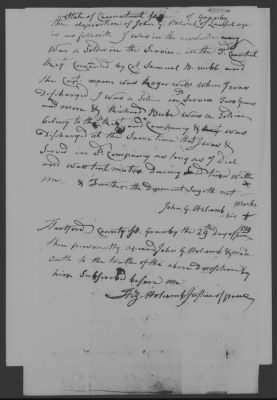 State of Connecticut
the deposition of John G Holcomb of lawful age
is as follows I was in the revolutionary
Was a Soldier in the Service in the 3d Connecticut
Regt Commanded by Col Samuel B. webb and
the Capt name was Roger Wells when I was
Discharged I was a Soldier in Service Two years
and more & Richard was a Soldier
belong to the Regt and Company & was
Discharged at the Same time that I was &
Served in Sd Company as long as I Did
and was tent mates During time With
me & Further the Deponent Sayeth not
John G. Holcomb
his mark
Hartford County Ss. Granby the 29th Day of June
then personally apeared John G Holcomb & made
oath to the truth of the above Deposition by
him Subscribed before me
Hez Holcomb Justice of peace